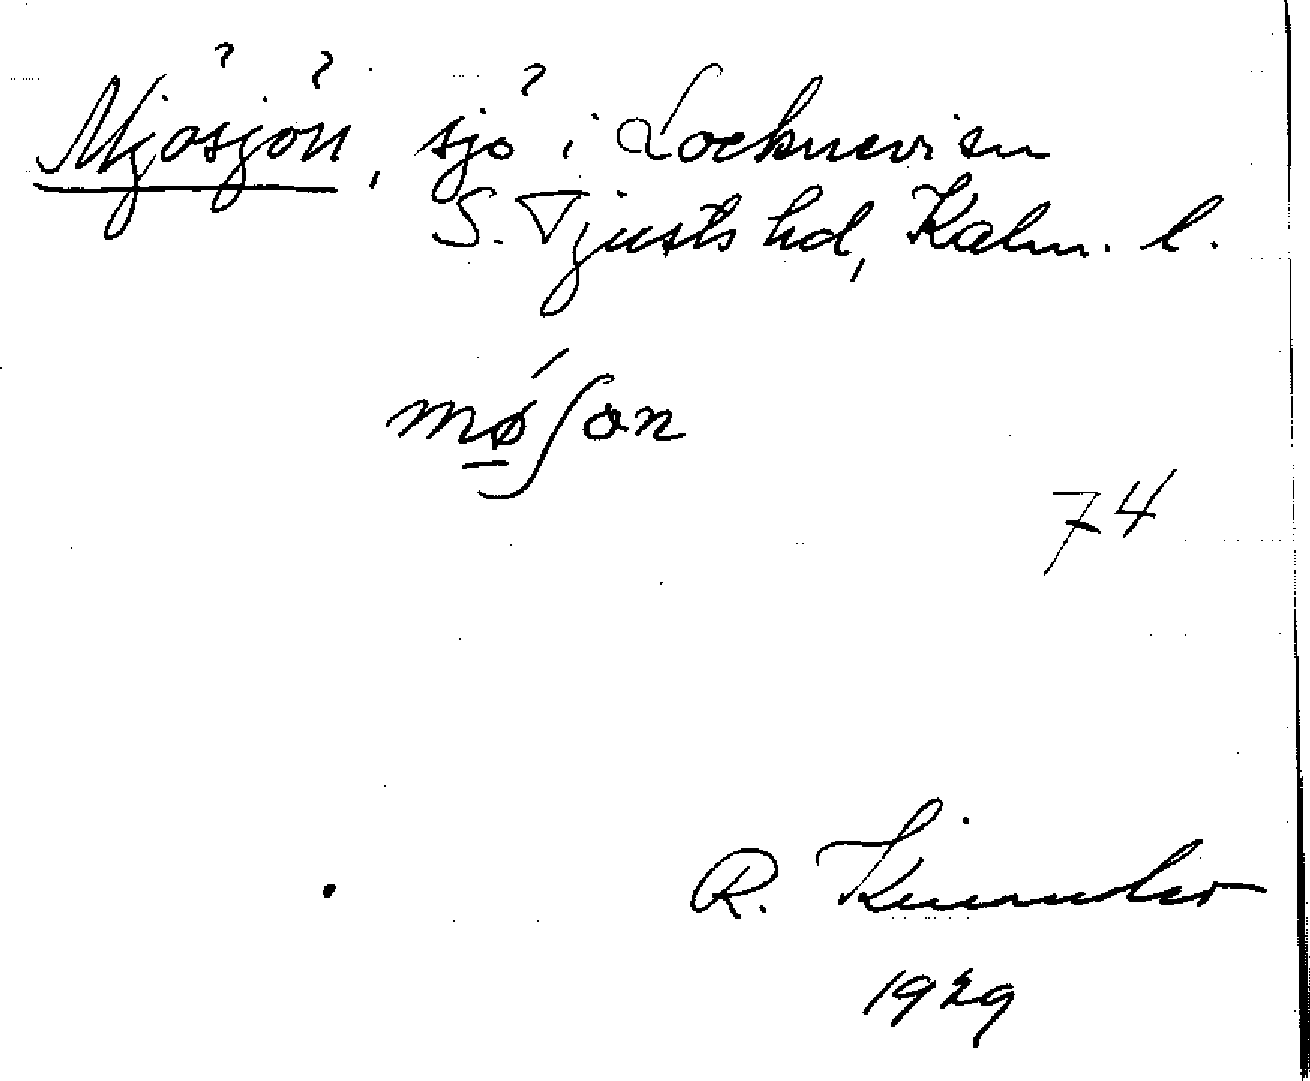 Mjösjön, sjö i Locknevi sn
S. Tjusts hd, Kalm. l.
mǿ̱ʃon
74
R.
1929